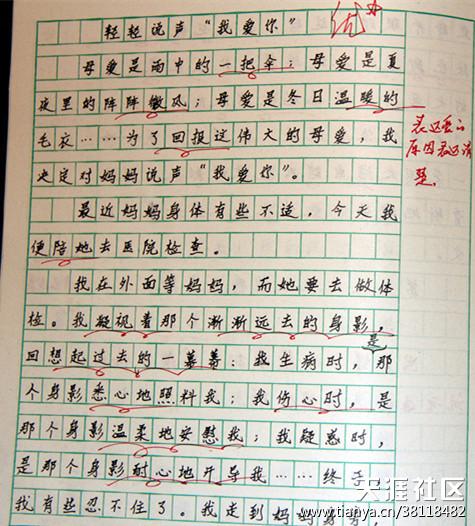 轻轻说声“我爱你”
优
母爱是雨中的一把伞；母爱是夏
夜里的阵阵微风；母爱是冬日温暖的
毛衣……为了回报这伟大的母爱，我
决定对妈妈说声“我爱你”。
表达爱的
原因表达清
楚。
最近妈妈身体有些不适，今天我
便陪她去医院检查。
我在外面等妈妈，而她要去做体
检。我凝视着那个渐渐远去的身影，
回想起过去的一幕幕：我生病时，是那
个身影悉心地照料我；我伤心时，是
那个身影温柔地安慰我；我疑惑时，
是那个身影耐心地开导我……终于
我有些忍不住了。我走到妈妈身旁
天涯社区
www.tianya.cn/38118482